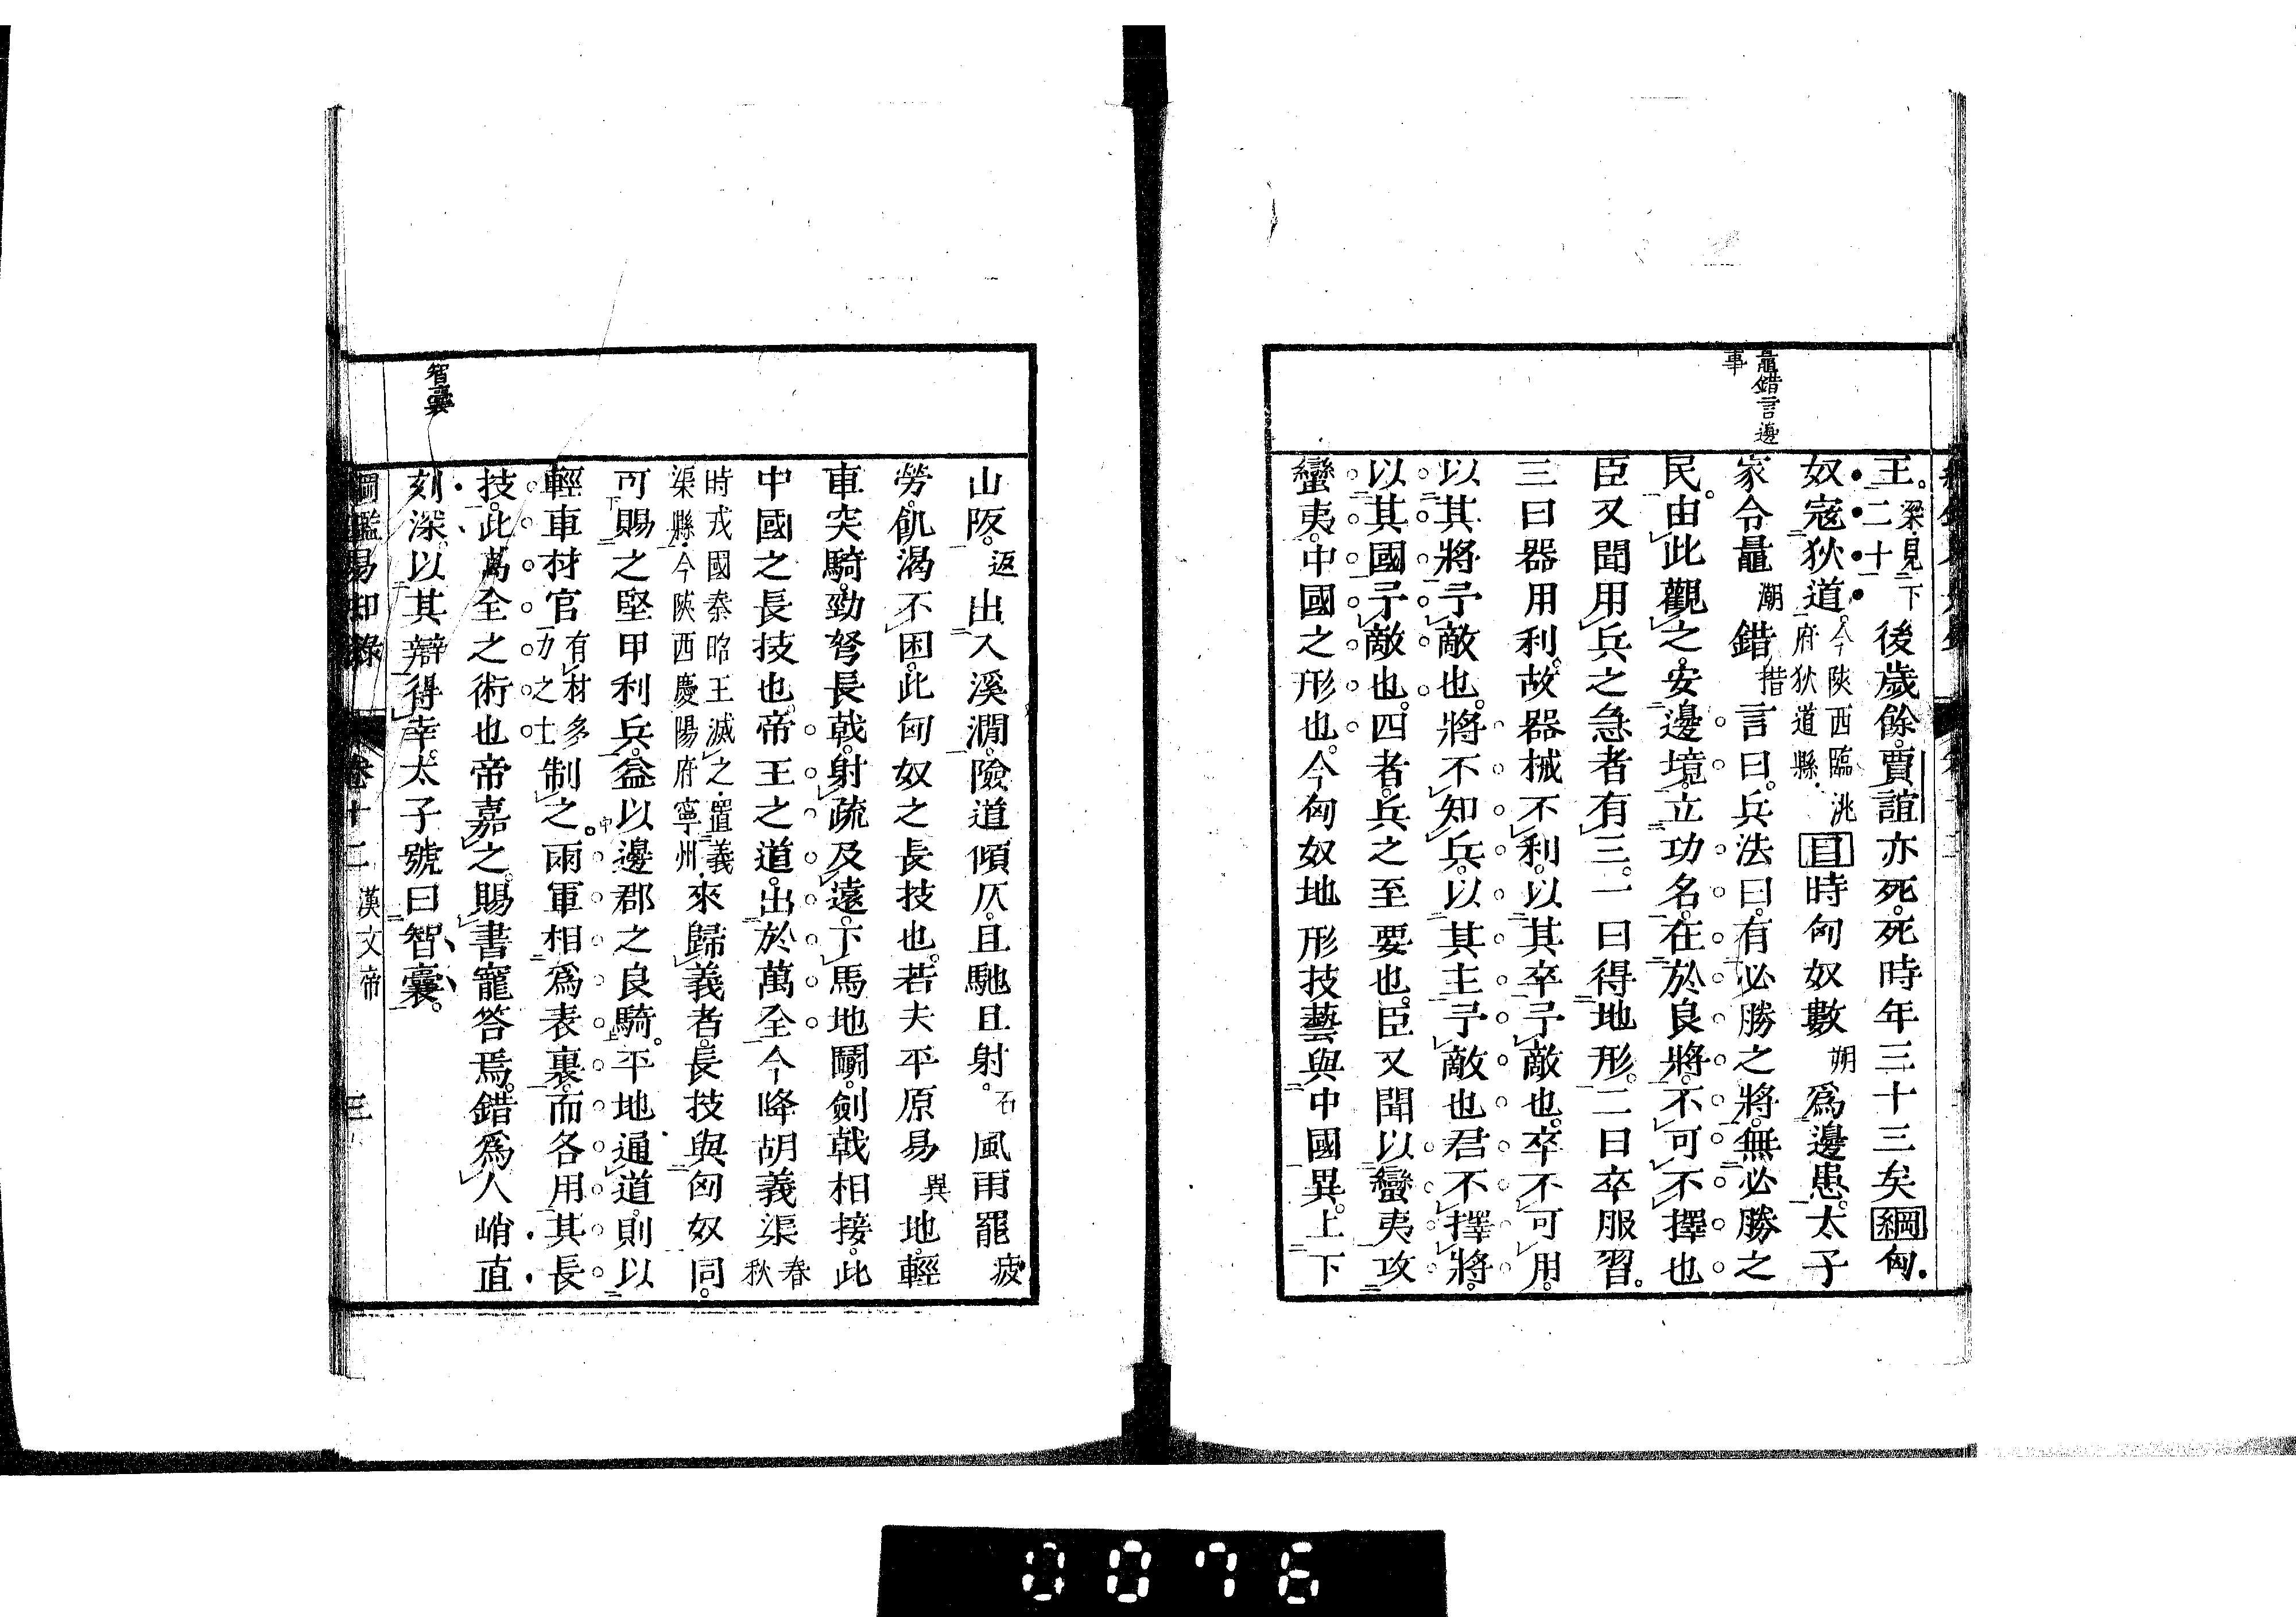 鼂錯言邊
事
王。梁見下二十後歲餘。賈誼亦死。死時年三十三矣綱匈
奴寇狄道。今陝西臨洮府狄道縣目時匈奴數朔爲邊患。太子
家令鼂潮錯措言曰。兵法曰。有必勝之將。無必勝之
民。由此觀之。安邊境。立功名。在於良將。不可不擇也
臣又聞用兵之急者有三。一曰得地形。二曰卒服習。
三曰器用利。故器械不利。以其卒予敵也。卒不可用。
以其將予敵也。將不知兵。以其主予敵也君不擇將。
以其國予敵也。四者。兵之至要也。臣又聞以蠻夷攻
蠻夷。中國之形也。今匈奴地形技藝與中國異。上下
山阪。返出入溪澗。險道傾仄。且馳且射。石風雨罷疲
勞。飢渴不困。此匈奴之長技也。若夫平原易異地。輕
車突騎。勁弩長戟。射疏及遠。下馬地鬬。劍戟相接。此
中國之長技也。帝王之道。出於萬全今降胡義渠春秋
時戎國秦昭王滅之置義渠縣今陝西慶陽府寧州來歸義者。長技與匈奴同。
可賜之堅甲利兵。益以邊郡之良騎。平地通道。則以
輕車材官有材多力之士制之。兩軍相爲表裏。而各用其長
技。此萬全之術也帝嘉之。賜書寵答焉。錯爲人峭直
刻深。以其辯得幸。太子號曰智囊。
智囊
綱鑑易知錄 卷十二 漢文帝 三
0076